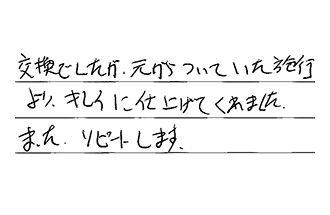 交換でしたが、元からついていた施行
より、キレイに仕上げてくれました。
また、リピートします。